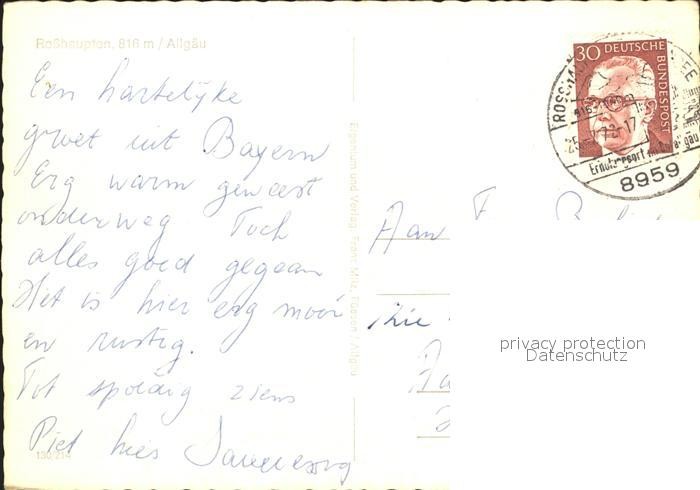 Roßhaupten, 816 m / Allgäu
Een hartelijke
groet uit Bayern
Erg warm geweest
onderweg. Toch
alles goed gegaan
Het is hier erg mooi
en rustig.
Tot spoedig ziens
Piet
130/214
Eigentum und Verlag: Franz Milz, Füssen / Allgäu
30 DEUTSCHE
BUNDESPOST
8959
Aan
privacy protection
Datenschutz